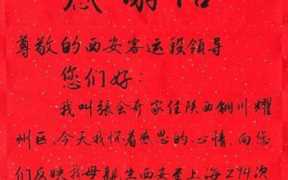 感谢信
尊敬的西安客运段领导
您们好:
我叫张会齐家住陕西铜川耀
州区,今天我怀着感恩的心情,向您
们反映我母亲坐西安至上海Z94次